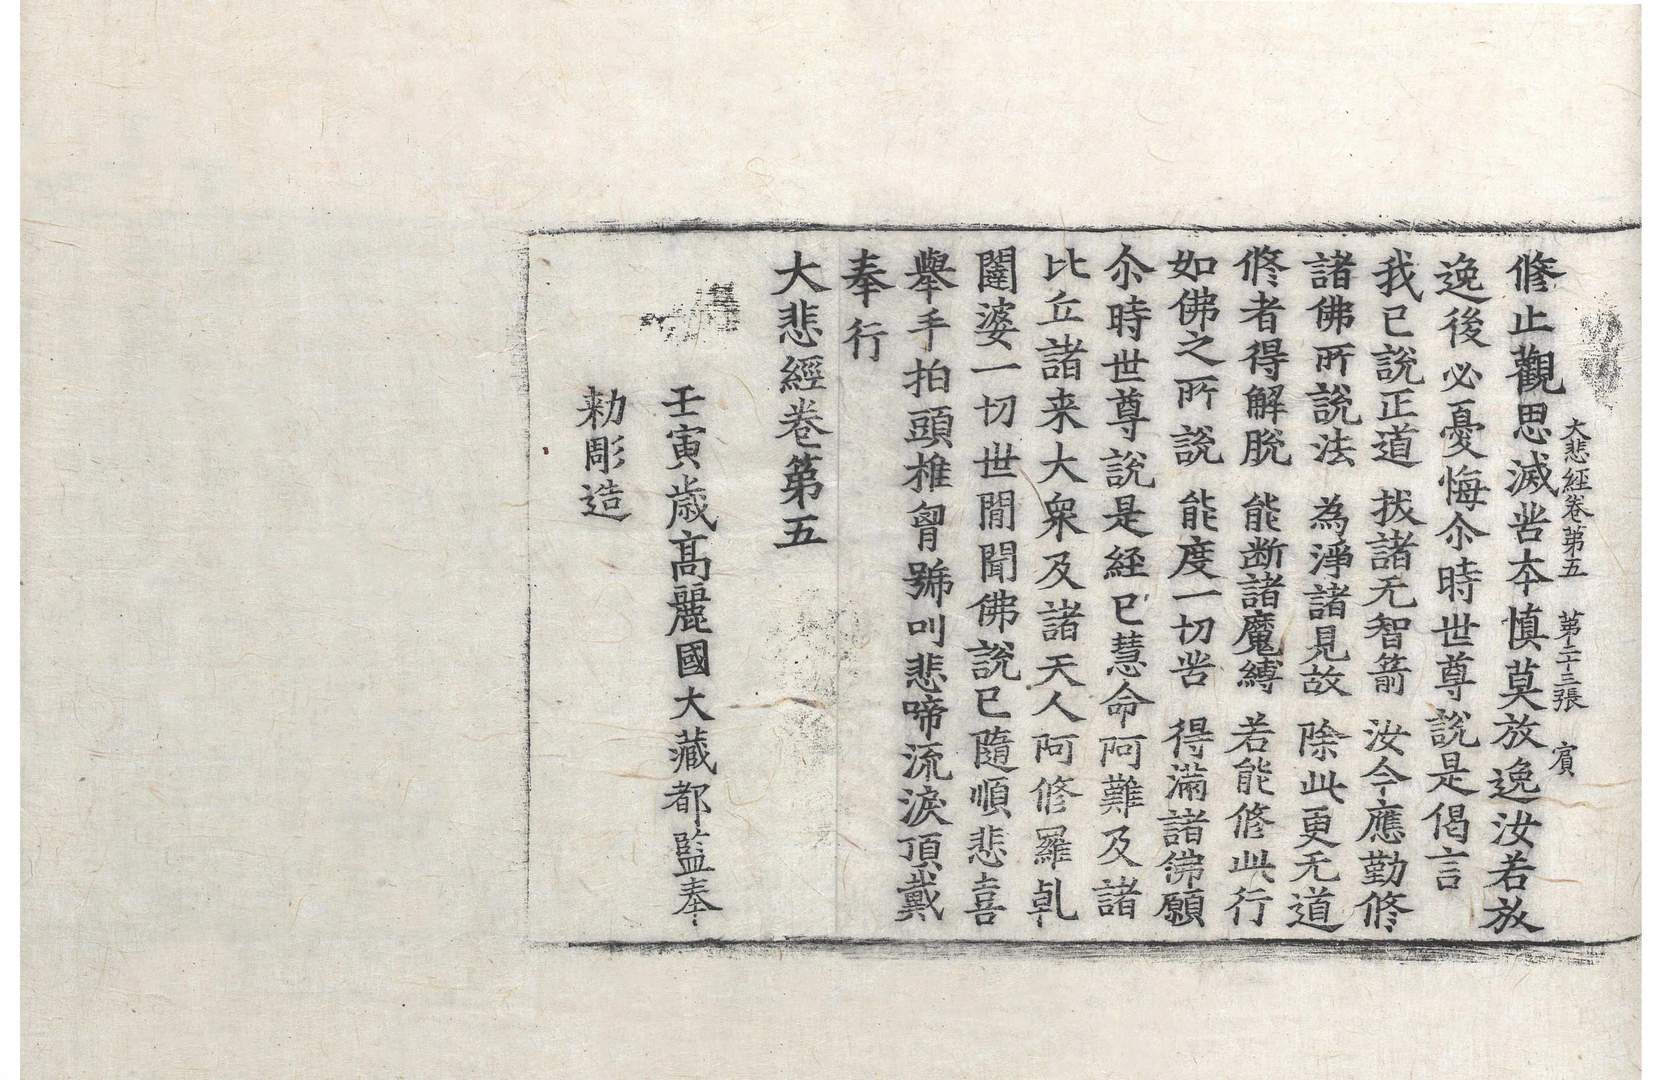 大悲經卷第五　第二十三張　賓
修止觀思滅苦本慎莫放逸汝若放
逸後必憂悔尒時世尊說是偈言
我已說正道　拔諸无智箭　汝今應勤修
諸佛所說法　為淨諸見故　除此更无道
修者得解脫　能断諸魔縛　若能修此行
如佛之所說　能度一切苦　得滿諸佛願
尒時世尊說是經已慧命阿難及諸
比丘諸来大衆及諸天人阿修羅乹
闥婆一切世間聞佛說已隨順悲喜
舉手拍頭椎胷號叫悲啼流淚頂戴
奉行
大悲經卷第五
壬寅歲高麗國大藏都監奉
勑彫造